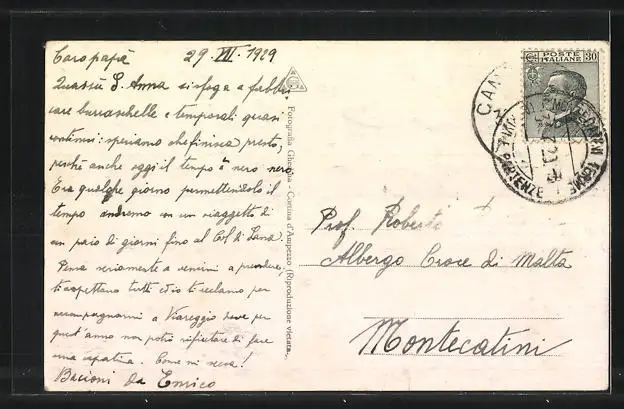 Caro papà 29. VII. 1929
Quassù S. Anna si sfoga a fabbri-
care burraschelle e temporali quasi
continui: speriamo che finisca presto,
perchè anche oggi il tempo è nero nero
Fra qualche giorno permettendolo il
tempo andremo in un viaggetto di
un paio di giorni fino al Col di Lana.
Pensa seriamente a venirci a prendere,
ti aspettano tutti ed io ti reclamo per
accompagnarmi a Viareggio dove per
quest'anno non potrò rifiutare di fare
una capatina. Come mi secca!
Bacioni da Enrico
Fotografia Ghedina - Cortina d'Ampezzo (Riproduzione vietata)
POSTE
ITALIANE
30
MONTECATINI
TERME
PARTENZE
Prof. Roberto
Albergo Croce di Malta
Montecatini